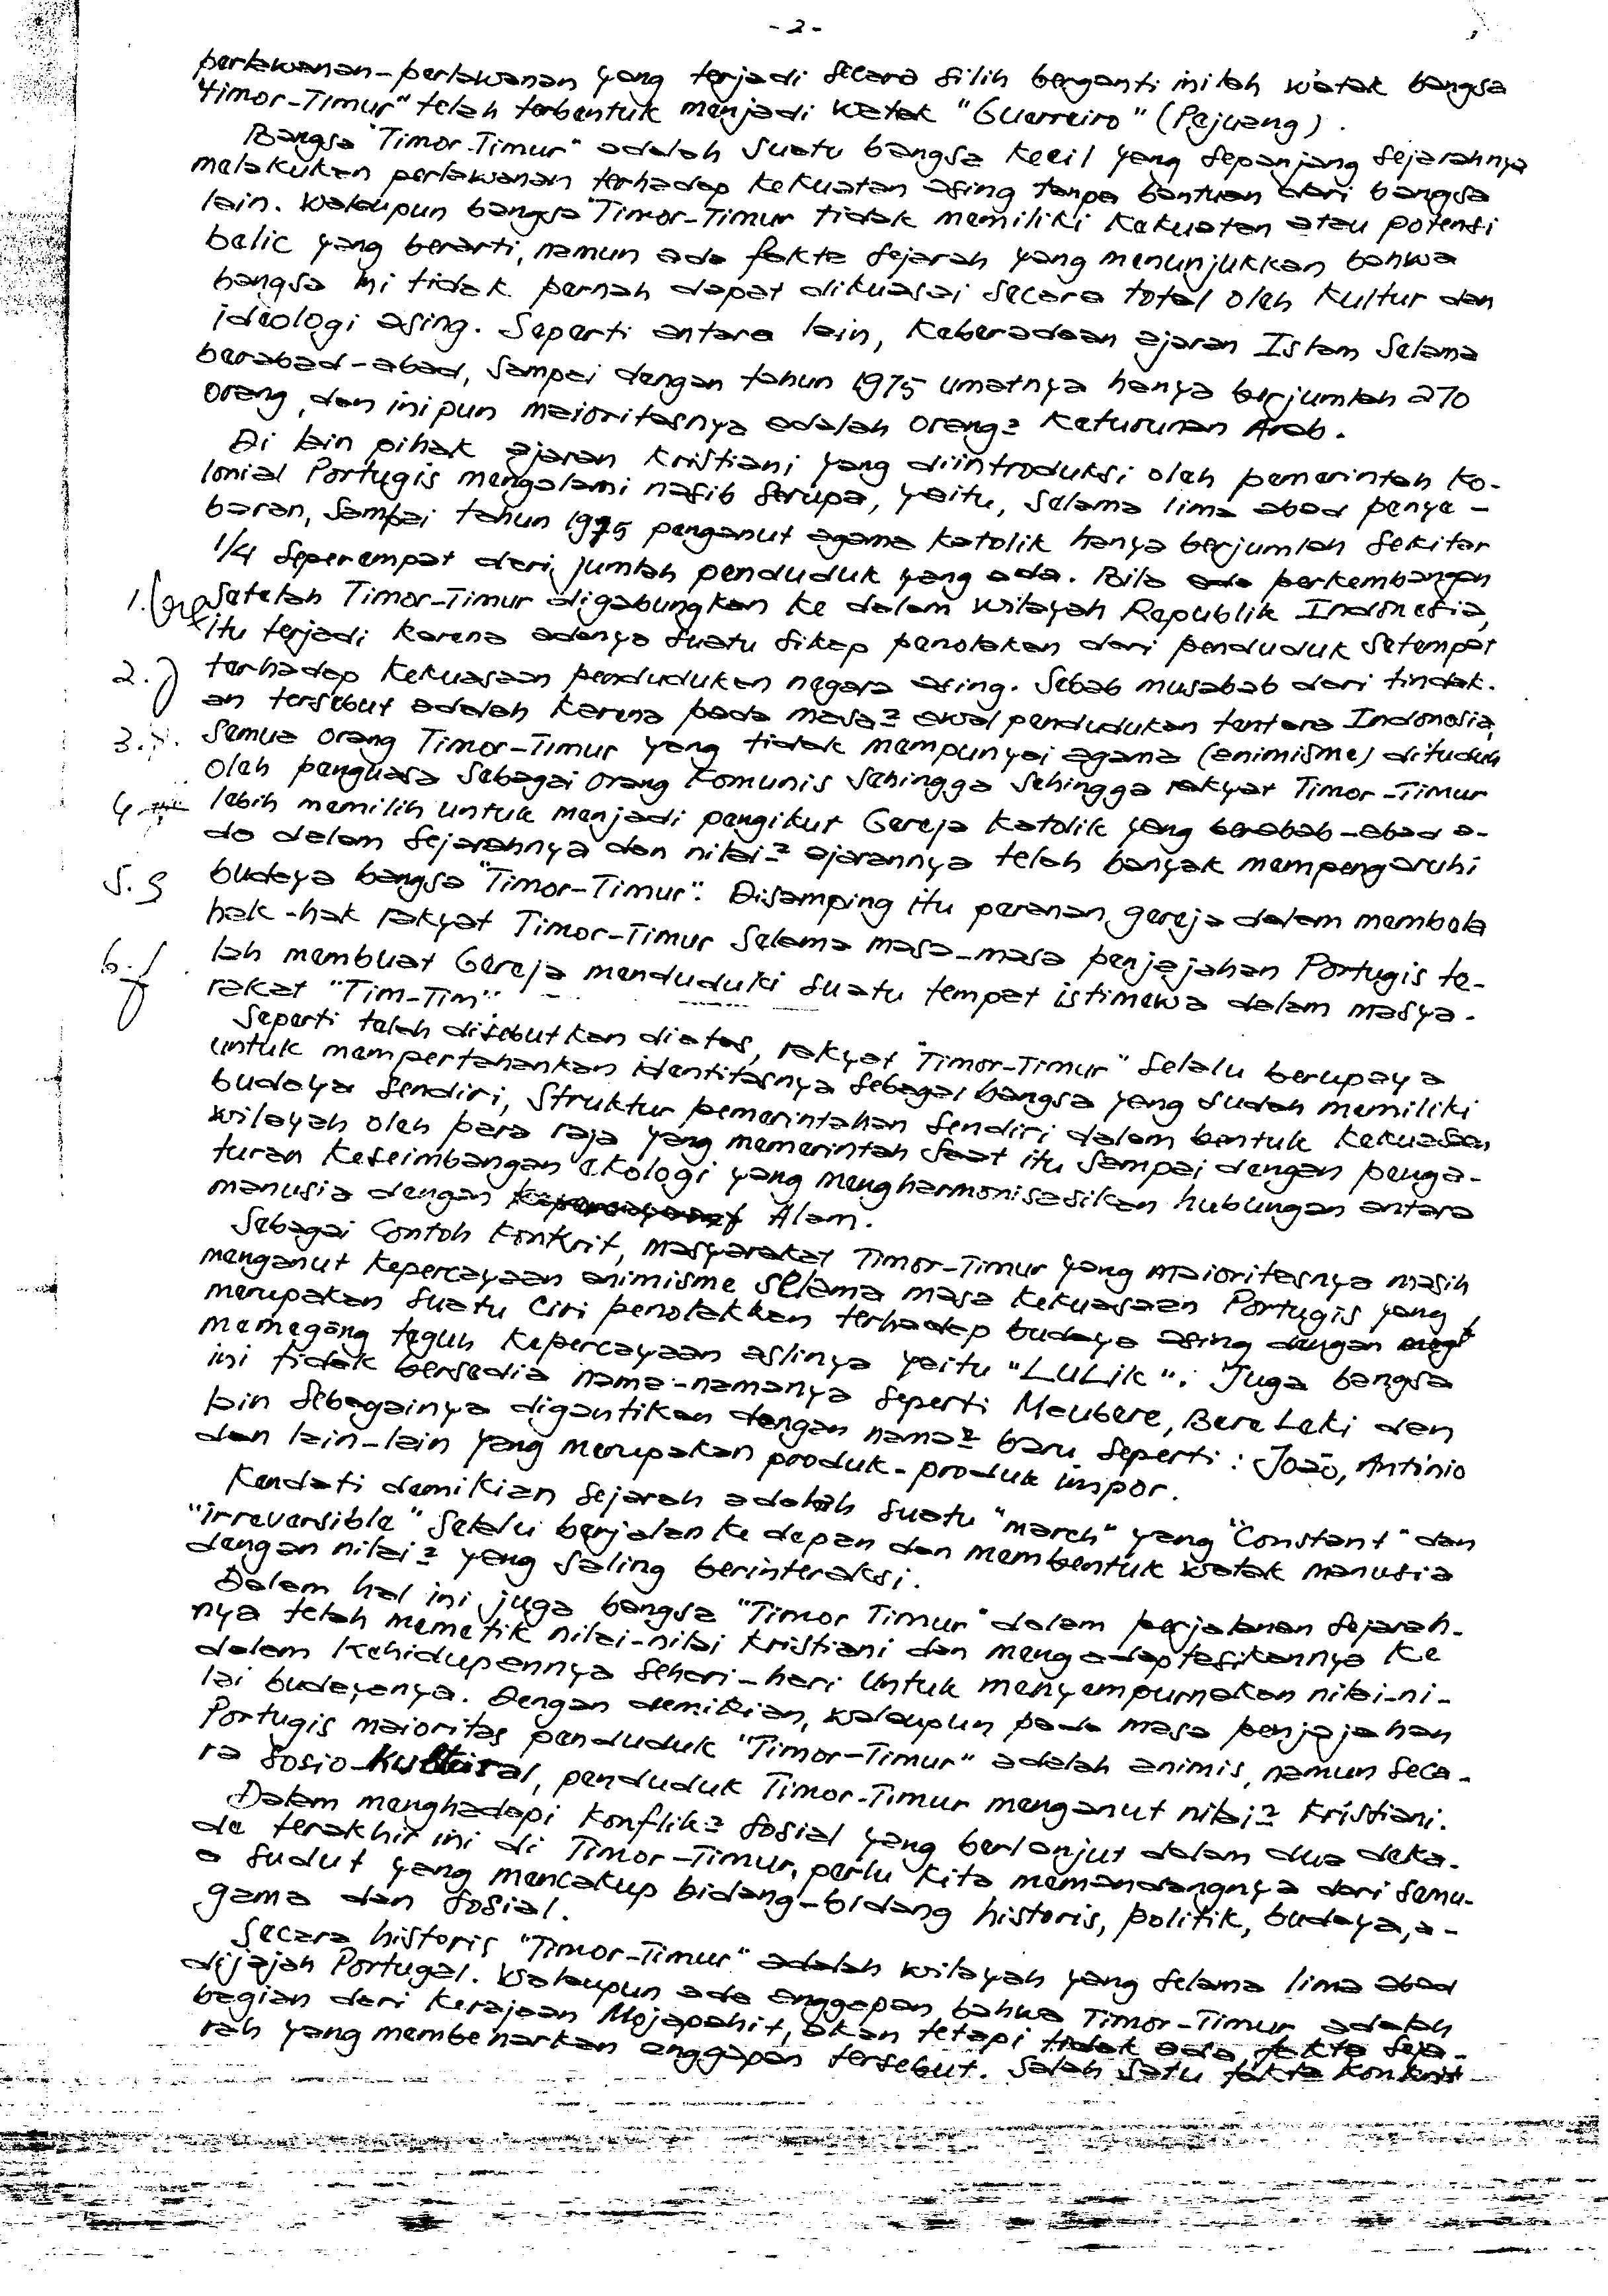 - 2 -
perlawanan-perlawanan yang terjadi secara silih berganti inilah watak bangsa
"Timor-Timur" telah terbentuk menjadi watak "Guerreiro" (Pejuang).
Bangsa "Timor-Timur" adalah suatu bangsa kecil yang sepanjang sejarahnya
melakukan perlawanan terhadap kekuatan asing tanpa bantuan dari bangsa
lain. Walaupun bangsa "Timor-Timur tidak memiliki kekuatan atau potensi
belic yang berarti, namun ada fakta sejarah yang menunjukkan bahwa
bangsa ini tidak pernah dapat dikuasai secara total oleh kultur dan
ideologi asing. Seperti antara lain, keberadaan ajaran Islam selama
berabad-abad, sampai dengan tahun 1975 umatnya hanya berjumlah 270
orang, dan inipun maioritasnya adalah orang2 keturunan Arab.
Di lain pihak ajaran Kristiani yang diintroduksi oleh pemerintah ko-
lonial Portugis mengalami nasib serupa, yaitu, selama lima abad penye-
baran, sampai tahun 1975 penganut agama katolik hanya berjumlah sekitar
1/4 seperempat dari jumlah penduduk yang ada. Bila ada perkembangan
1. setelah Timor-Timur digabungkan ke dalam wilayah Republik Indonesia,
itu terjadi karena adanya suatu sikap penolakan dari penduduk setempat
2. terhadap kekuasaan pendudukan negara asing. Sebab musabab dari tindak-
an tersebut adalah karena pada masa2 awal pendudukan tentara Indonesia,
3. semua orang Timor-Timur yang tidak mempunyai agama (animisme) dituduh
oleh penguasa sebagai orang komunis sehingga sehingga rakyat Timor-Timur
4. lebih memilih untuk menjadi pengikut Gereja Katolik yang berabab-abad a-
da dalam sejarahnya dan nilai-2 ajarannya telah banyak mempengaruhi
5. budaya bangsa "Timor-Timur". Disamping itu peranan gereja dalam membela
hak-hak rakyat Timor-Timur selama masa-masa penjajahan Portugis te-
6. lah membuat Gereja menduduki suatu tempat istimewa dalam masya-
rakat "Tim-Tim".
Seperti telah disebutkan diatas, rakyat "Timor-Timur" selalu berupaya
untuk mempertahankan identitasnya sebagai bangsa yang sudah memiliki
budaya sendiri, struktur pemerintahan sendiri dalam bentuk kekuasaan
wilayah oleh para raja yang memerintah saat itu sampai dengan penga-
turan keseimbangan ekologi yang mengharmonisasikan hubungan antara
manusia dengan Alam.
Sebagai contoh konkrit, masyarakat Timor-Timur yang maioritasnya masih
menganut kepercayaan animisme selama masa kekuasaan Portugis yang
merupakan suatu ciri penolakkan terhadap budaya asing dengan
memegang teguh kepercayaan aslinya yaitu "LULik". Juga bangsa
ini tidak bersedia nama-namanya seperti Maubere, Bere Leki dan
lain sebagainya digantikan dengan nama2 baru seperti: João, António
dan lain-lain yang merupakan produk-produk impor.
Kendati demikian sejarah adalah suatu "march" yang "Constant" dan
"irreversible" selalu berjalan ke depan dan membentuk watak manusia
dengan nilai2 yang saling berinteraksi.
Dalam hal ini juga bangsa "Timor Timur" dalam perjalanan sejarah-
nya telah memetik nilai-nilai Kristiani dan mengadaptasikannya ke
dalam kehidupannya sehari-hari untuk menyempurnakan nilai-ni-
lai budayanya. Dengan demikian, walaupun pada masa penjajahan
Portugis maioritas penduduk "Timor-Timur" adalah animis, namun seca-
ra sosio-kultural, penduduk Timor-Timur menganut nilai2 Kristiani.
Dalam menghadapi konflik2 sosial yang berlanjut dalam dua deka-
de terakhir ini di Timor-Timur, perlu kita memandangnya dari semu-
a sudut yang mencakup bidang-bidang historis, politik, budaya, a-
gama dan sosial.
Secara historis "Timor-Timur" adalah wilayah yang selama lima abad
dijajah Portugal. Walaupun ada anggapan bahwa Timor-Timur adalah
bagian dari Kerajaan Mojapahit, akan tetapi tidak ada fakta seja-
rah yang membenarkan anggapan tersebut. Salah satu fakta konkrit